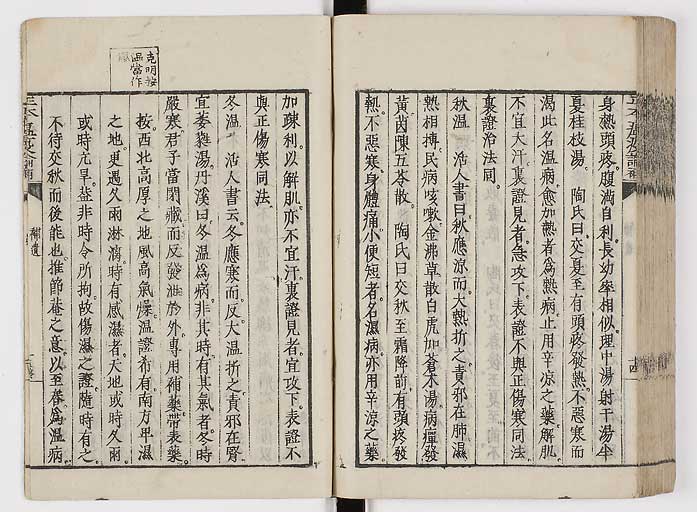 身熱頭疼。腹滿自利。長幼率相似。理中湯射干湯半
夏桂枝湯　陶氏曰。交夏至有頭疼發熱。不惡寒而
渴。此名溫病。愈加熱者爲熱病。止用辛凉之藥解肌。
不宜大汗。裏證見者。急攻下。表證不與正傷寒同法。
裏證治法同。
秋溫　活人書曰。秋應凉而大熱折之。責邪在肺。濕
熱相搏。民病咳嗽。金沸草散白虎加蒼朮湯。病癉發
黃茵陳五苓散。　陶氏曰。交秋至霜降前。有頭疼發
熱。不惡寒。身體痛。小便短者。名濕病。亦用辛凉之藥
加疎利。以解肌。亦不宜汗。裏證見者。宜攻下。表證不
與正傷寒同法。
冬溫　活人書云。冬應寒而反大溫折之。責邪在腎
宜葳蕤湯。丹溪曰。冬溫爲病。非其時有其氣者。冬時
嚴寒。君子當閉藏而反發泄於外。專用補藥帶表藥。
按西北高厚之地。風高氣燥。濕證布有。南方卑濕
之地。更遇久雨淋漓。時有感濕者。天地或時久雨。
或時亢旱。益非時令所拘。故傷濕之證。隨時有之。
不待交秋而後能也。推節菴之意。以至春爲溫病。
克明按
溫當作
補遺
十四